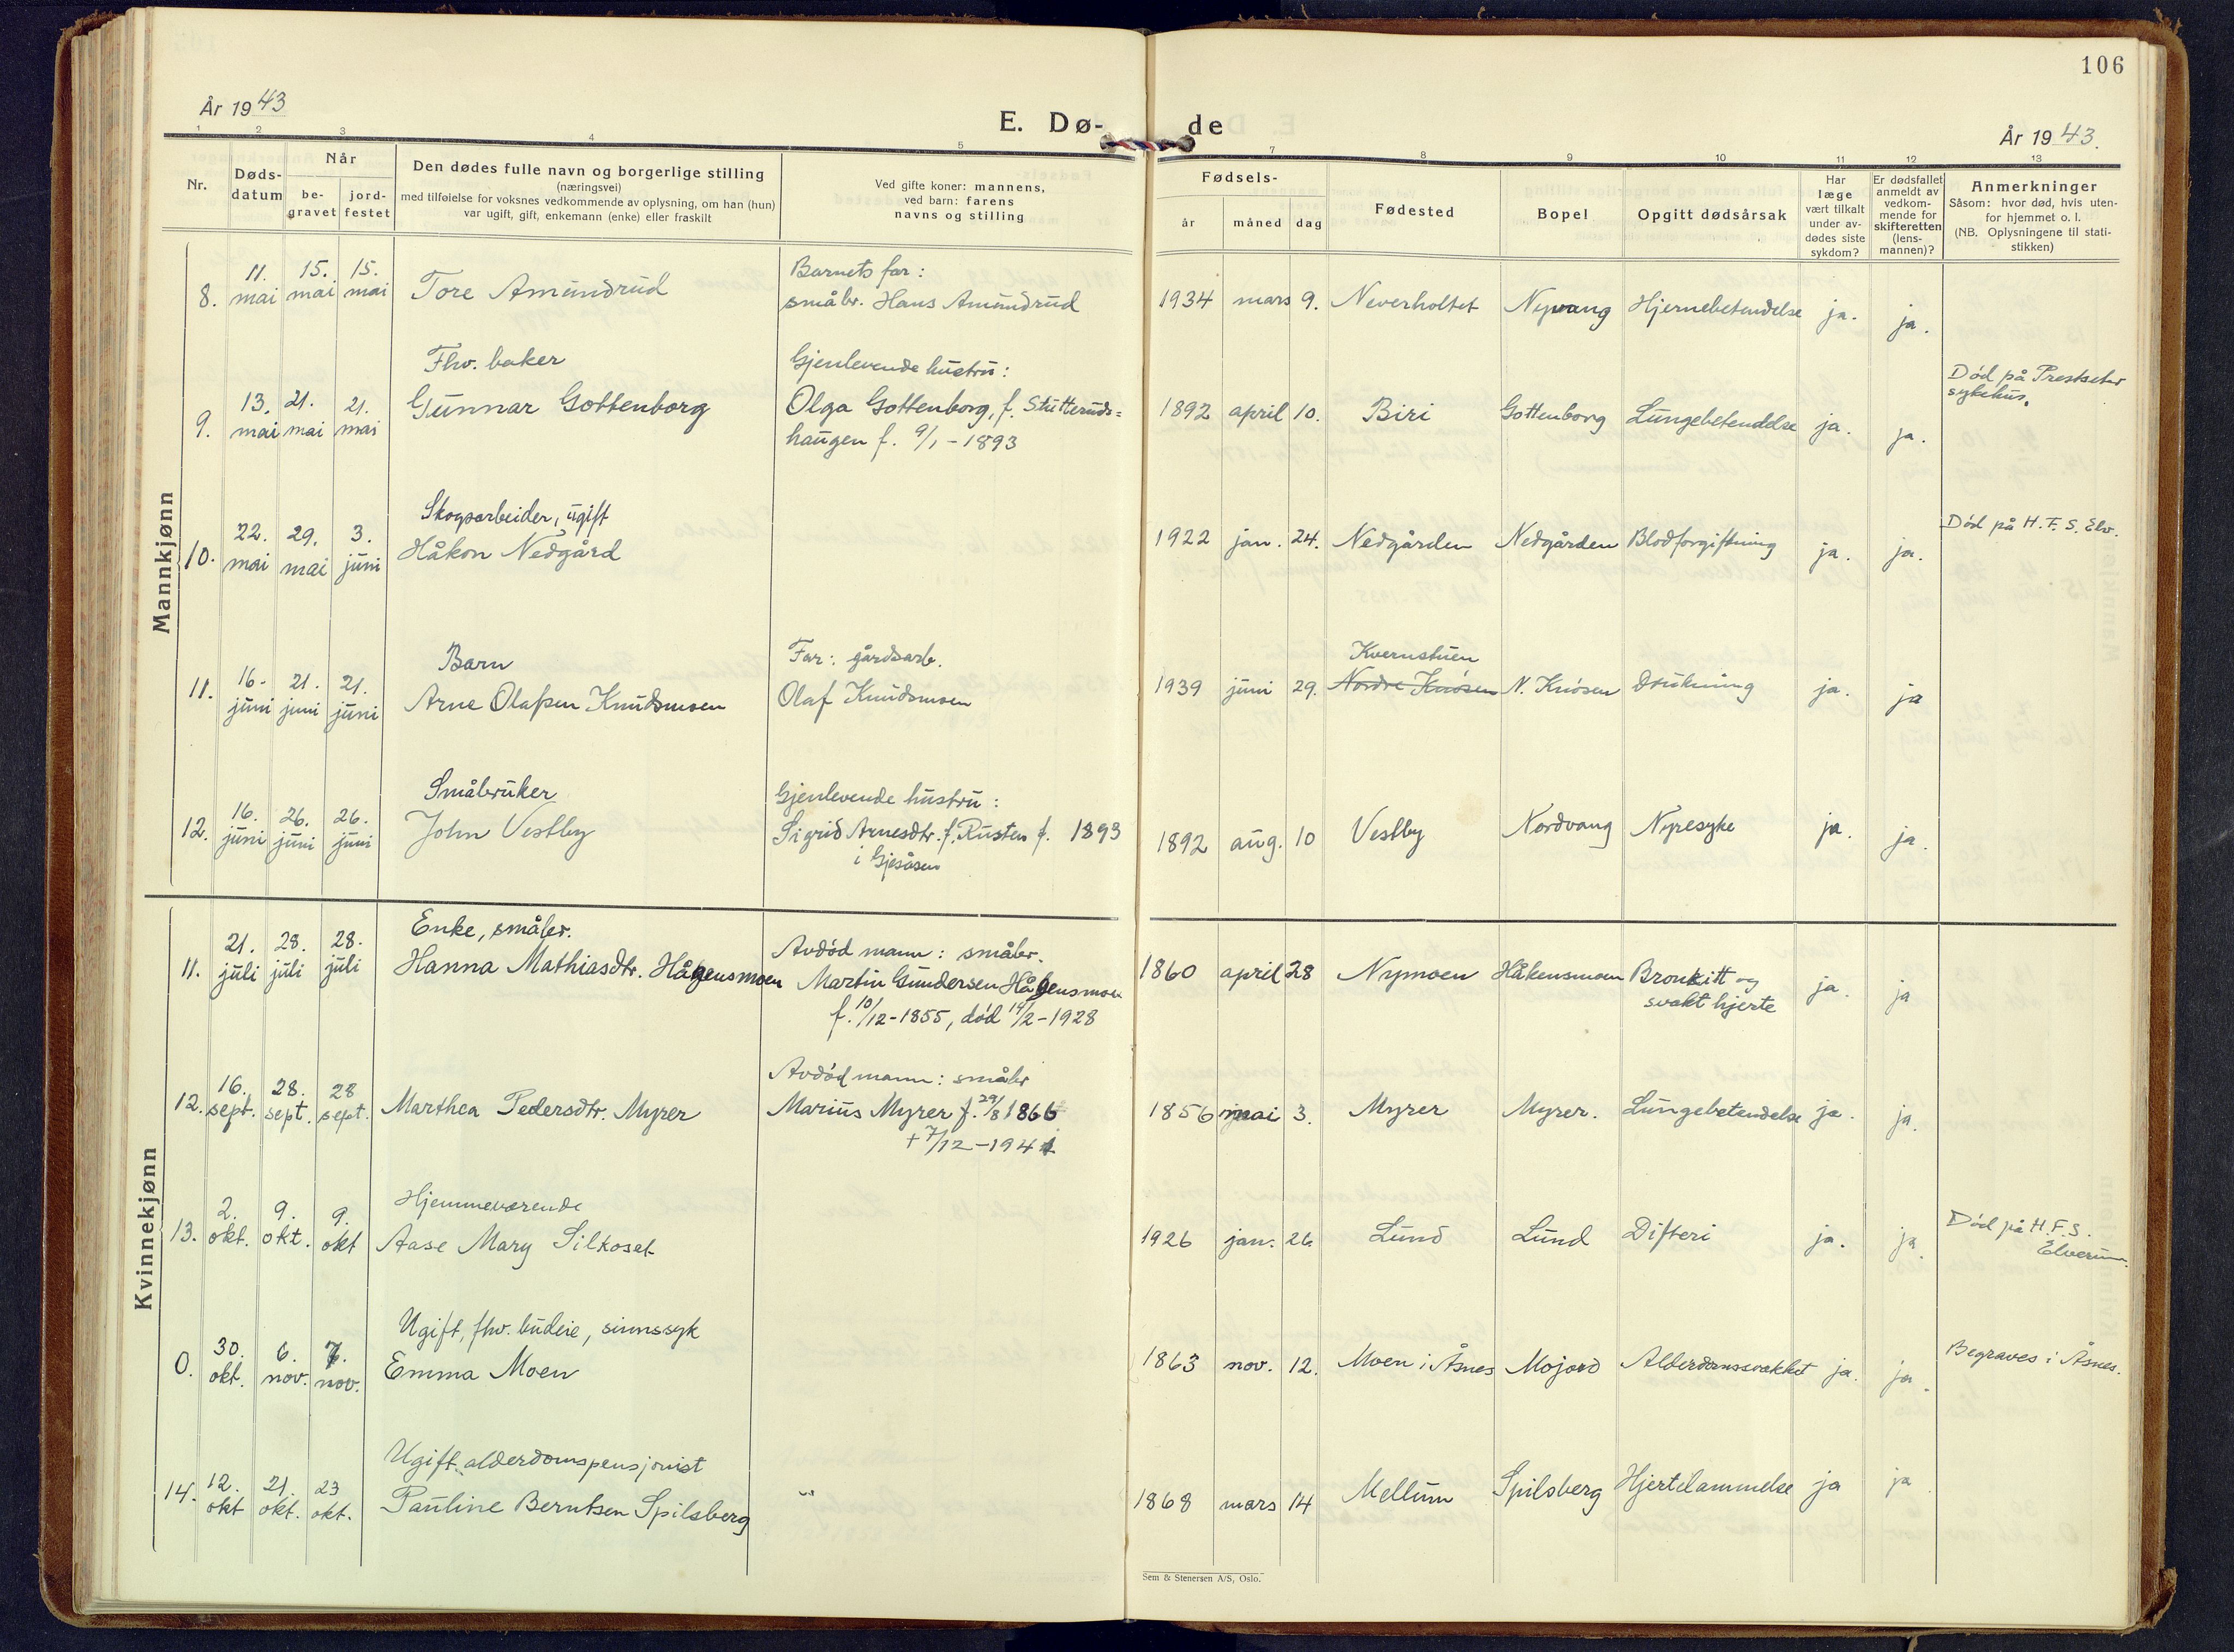 106
År 1943
E. Dø-de
År 1943.
1 2 3 4 5 7 8 9 10 11 12 13
Nr.
Døds-
datum
Når
be-
gravet
jord-
festet
Den dødes fulle navn og borgerlige stilling
(næringsvei)
med tilføielse for voksnes vedkommende av oplysning, om han (hun)
var ugift, gift, enkemann (enke) eller fraskilt
Ved gifte koner: mannens,
ved barn: farens
navns og stilling
Fødsels-
år måned dag
Fødested
Bopel
Opgitt dødsårsak
Har
læge
vært tilkalt
under av-
dødes siste
sykdom?
Er dødsfallet
anmeldt av
vedkom-
mende for
skifteretten
(lens-
mannen)?
Anmerkninger
Såsom: hvor død, hvis uten-
for hjemmet o. l.
(NB. Oplysningene til stati-
stikken)
Mannkjønn
8. 11. mai 15. mai 15. mai Tore Amundrud
Barnets far:
småbr. Hans Amundrud
1934 mars 9. Neverholtet Nyvang Hjernebetendelse ja. ja.
Fhv. baker
9. 13. mai 21. mai 21. mai Gunnar Gottenborg
Gjenlevende hustru:
Olga Gottenborg, f. Stutteruds=
haugen f. 9/1-1893
1892 april 10. Biri Gottenborg Lungebetendelse ja. ja.
Død på Prestseter
sykehus.
Skogsarbeider, ugift
10. 22. mai 29. mai 3. juni Håkon Nedgård
1922 jan. 24. Nedgården Nedgården Blodforgiftning ja. ja.
Død på H.F.S. Elv.
Barn
11. 16. juni 21. juni 21. juni Arne Olafsen Knudsmoen
Far: gårdsarb.
Olaf Knudsmoen
Kvernstuen
1939 juni 29. Nordre Knøsen N. Knøsen Drukning ja. ja
Småbruker
12. 16. juni 26. juni 26. juni John Vestby
Gjenlevende hustru:
Sigrid Arnesdtr. f. Rusten f. 1893
i Gjesåsen
1892 aug. 10 Vestby Nordvang Nyresyke ja. ja.
Kvinnekjønn
Enke, småbr.
11. 21. juli 28. juli 28. juli Hanna Mathiasdtr. Hågensmoen
Avdød mann: småbr.
Martin Gundersen Hågensmoen
f. 10/12-1855, død 14/2-1928
1860 april 28 Nymoen Håkensmoen Bronkitt og
svakt hjerte ja. ja
12. 16. sept. 28. sept. 28 sept. Marthea Pedersdtr. Myrer
Avdød mann: småbr
Marius Myrer f. 29/8 1866
+ 7/12-1941
1856 mai 3. Myrer Myrer. Lungebetendelse ja. ja.
Hjemmeværende
13. 2. okt. 9. okt. 9. okt Aase Mary Silkoset
1926 jan. 26. Lund Lund Difteri ja. ja.
Død på H.F.S.
Elverum.
Ugift, fhv. budeie, sinnssyk
0. 30. okt. 6. nov. 7. nov. Emma Moen
1863 nov. 12. Moen i Åsnes Mojord Alderdomssvakhet ja. ja.
Begraves i Åsnes.
Ugift alderdomspensjonist
14. 12. okt 21. okt. 23 okt. Pauline Berntsen Spilsberg
1868 mars 14 Mellum Spilsberg Hjertelammelse ja ja
Sem & Stenersen A/S, Oslo.